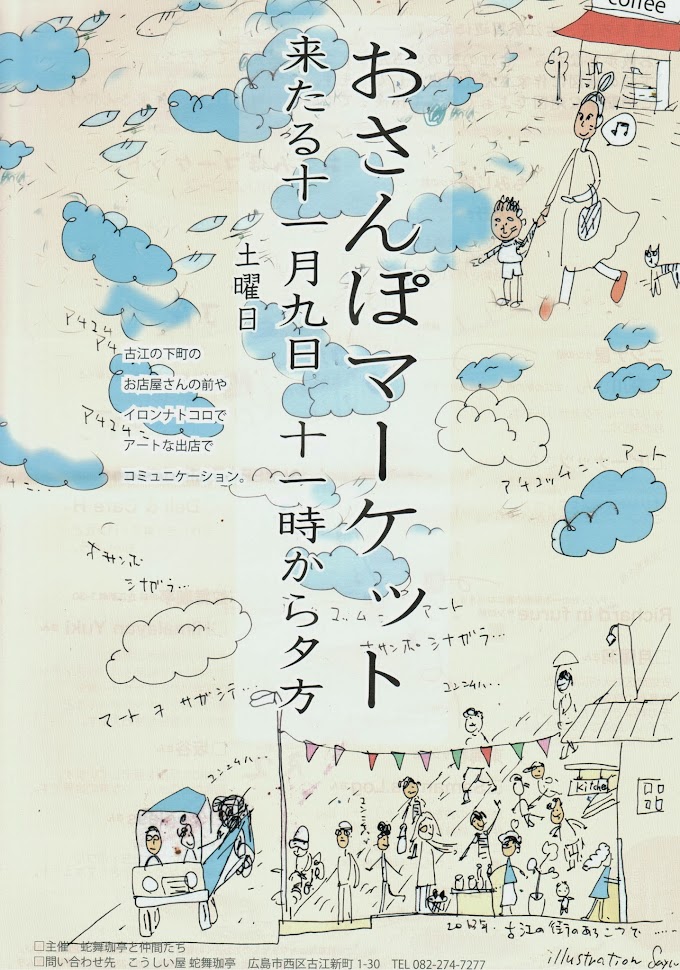 coffee
おさんぽマーケット
来たる十一月九日 十一時から夕方
土曜日
古江の下町の
お店屋さんの前や
イロンナトコロで
アートな出店で
コミュニケーション。
アチコッチニ... アート
オサンポ
シナガラ...
アート
オサンポ シナガラ...
アート オ サガシテ...
コンニチハ...
コンニチハ...
Kitchen
古江の街のあちこちで......
illustration
□主催 蛇舞珈亭と仲間たち
□問い合わせ先 こうしい屋 蛇舞珈亭 広島市西区古江新町 1-30 TEL 082-274-7277